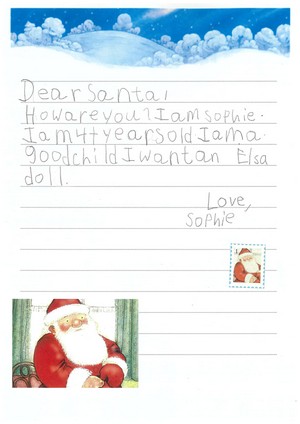 Dear Santa,
How are you? I am sophie.
I am 4+ years old I am a.
good child I want an Elsa
doll.
Love,
Sophie